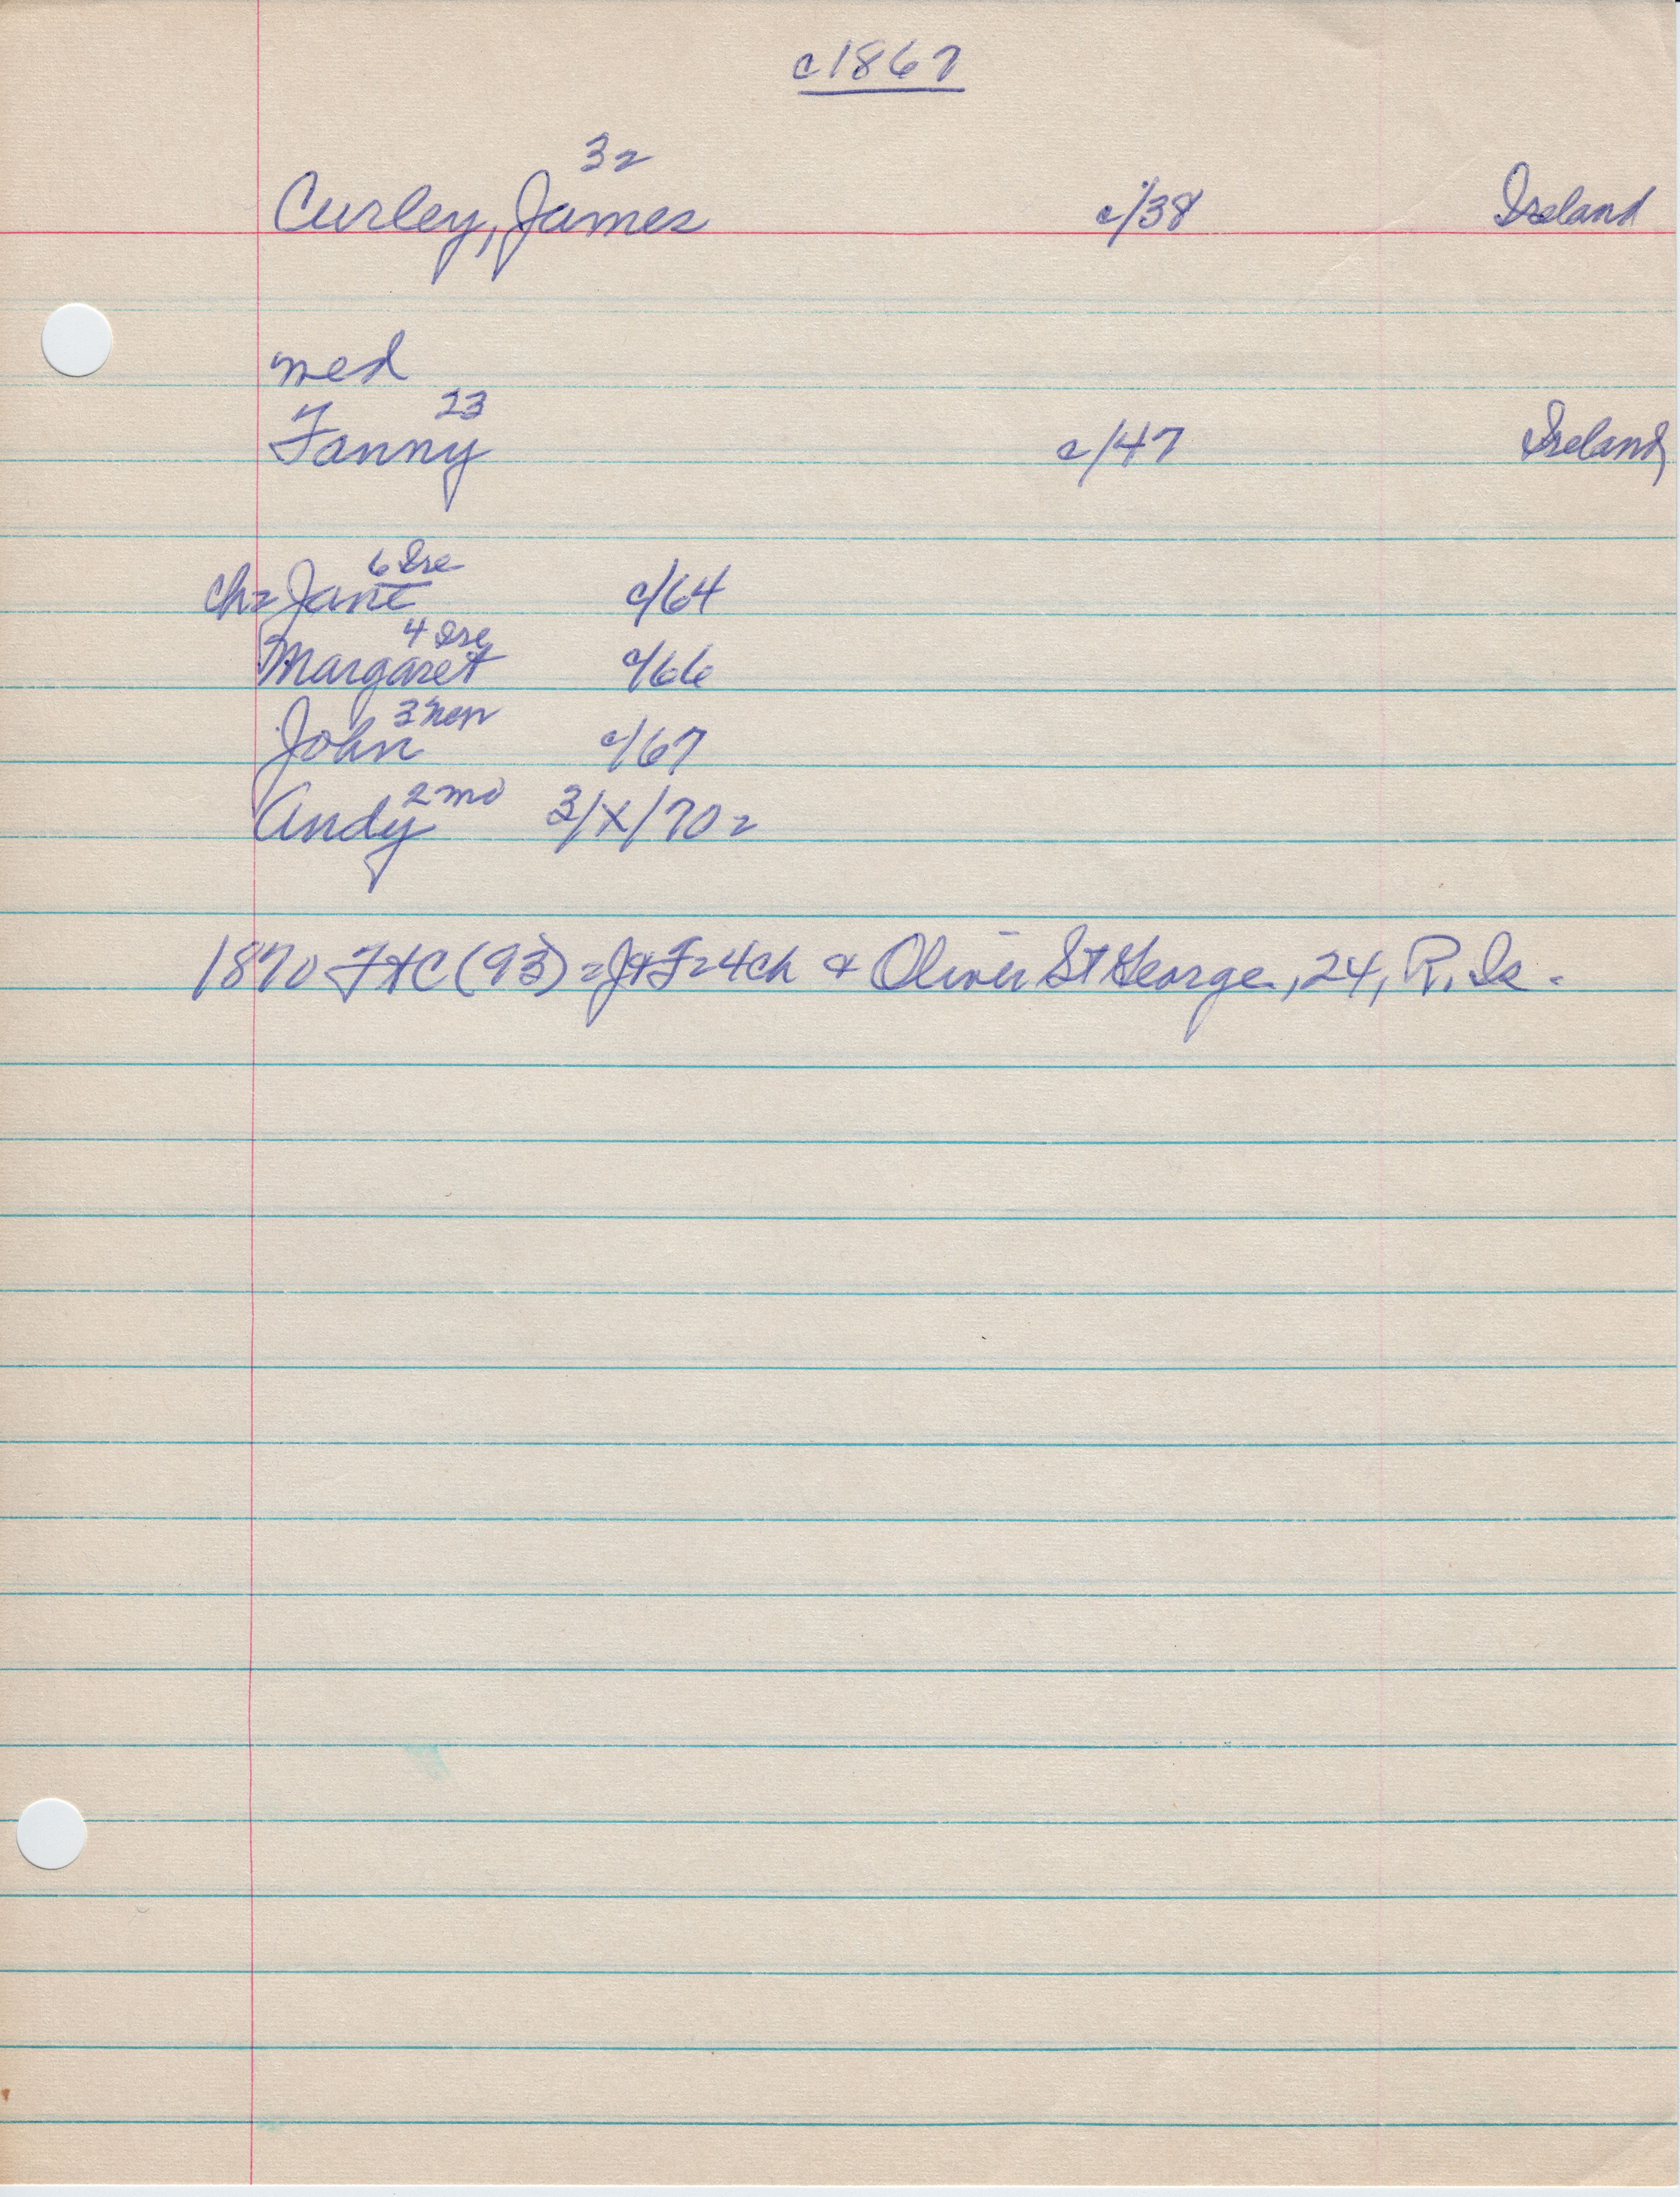 c1867
32
Curley, James c/38 Ireland
med
23
Fanny c/47 Ireland
6 Ire
ch= Jane c/64
4 Ire
Margaret c/66
3
John c/67
2 mo
Andy 3/X/70=
1870 FHC (93) = J+F=4ch & Oliver St George, 24, R. Is.